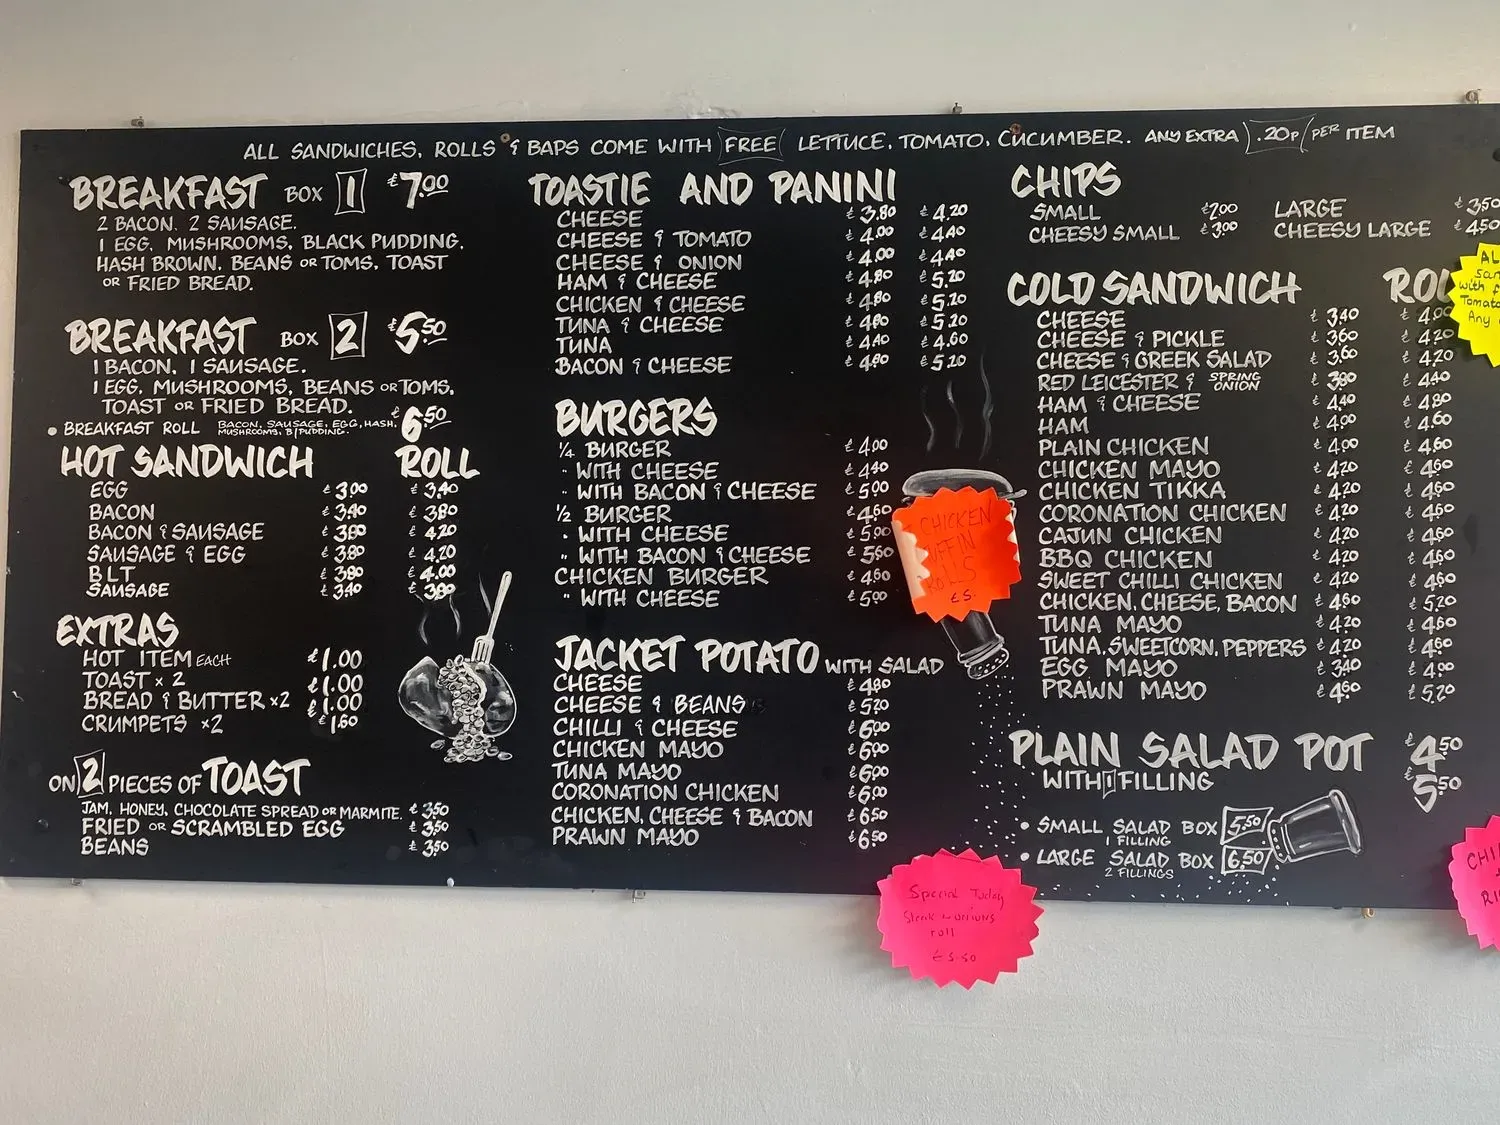 ALL SANDWICHES, ROLLS & BAPS COME WITH FREE LETTUCE, TOMATO, CUCUMBER. ANY EXTRA .20P PER ITEM
BREAKFAST BOX 1 £7.00
2 BACON. 2 SAUSAGE.
1 EGG, MUSHROOMS, BLACK PUDDING.
HASH BROWN, BEANS OR TOMS, TOAST
OR FRIED BREAD.
BREAKFAST BOX 2 £5.50
1 BACON, 1 SAUSAGE.
1 EGG, MUSHROOMS, BEANS OR TOMS,
TOAST OR FRIED BREAD.
• BREAKFAST ROLL BACON, SAUSAGE, EGG, HASH, £6.50
MUSHROOMS, B/PUDDING.
HOT SANDWICH ROLL
EGG £3.00 £3.40
BACON £3.40 £3.80
BACON & SAUSAGE £3.80 £4.20
SAUSAGE & EGG £3.80 £4.20
BLT £3.80 £4.00
SAUSAGE £3.40 £3.80
EXTRAS
HOT ITEM EACH £1.00
TOAST x 2 £1.00
BREAD & BUTTER x2 £1.00
CRUMPETS x2 £1.60
ON 2 PIECES OF TOAST
JAM, HONEY, CHOCOLATE SPREAD OR MARMITE. £3.50
FRIED OR SCRAMBLED EGG £3.50
BEANS £3.50
TOASTIE AND PANINI
CHEESE £3.80 £4.20
CHEESE & TOMATO £4.00 £4.40
CHEESE & ONION £4.00 £4.40
HAM & CHEESE £4.80 £5.20
CHICKEN & CHEESE £4.80 £5.20
TUNA & CHEESE £4.80 £5.20
TUNA £4.40 £4.60
BACON & CHEESE £4.80 £5.20
BURGERS
¼ BURGER £4.00
" WITH CHEESE £4.40
" WITH BACON & CHEESE £5.00
½ BURGER £4.60
" WITH CHEESE £5.00
" WITH BACON & CHEESE £5.60
CHICKEN BURGER £4.60
" WITH CHEESE £5.00
JACKET POTATO WITH SALAD
CHEESE £4.80
CHEESE & BEANS £5.20
CHILLI & CHEESE £6.00
CHICKEN MAYO £6.00
TUNA MAYO £6.00
CORONATION CHICKEN £6.00
CHICKEN, CHEESE & BACON £6.50
PRAWN MAYO £6.50
CHICKEN
ROLLS
£5.
Special Today
Steak & onions
roll
£5.50
CHIPS
SMALL £2.00 LARGE £3.50
CHEESY SMALL £3.00 CHEESY LARGE £4.50
COLD SANDWICH
CHEESE £3.40 £4.00
CHEESE & PICKLE £3.60 £4.20
CHEESE & GREEK SALAD £3.60 £4.20
RED LEICESTER & SPRING ONION £3.80 £4.40
HAM & CHEESE £4.40 £4.80
HAM £4.00 £4.60
PLAIN CHICKEN £4.00 £4.60
CHICKEN MAYO £4.20 £4.60
CHICKEN TIKKA £4.20 £4.60
CORONATION CHICKEN £4.20 £4.60
CAJUN CHICKEN £4.20 £4.60
BBQ CHICKEN £4.20 £4.60
SWEET CHILLI CHICKEN £4.20 £4.60
CHICKEN, CHEESE, BACON £4.60 £5.20
TUNA MAYO £4.20 £4.60
TUNA, SWEETCORN, PEPPERS £4.20 £4.60
EGG MAYO £3.40 £4.00
PRAWN MAYO £4.60 £5.20
PLAIN SALAD POT £4.50
WITH 1 FILLING £5.50
• SMALL SALAD BOX 5.50
1 FILLING
• LARGE SALAD BOX 6.50
2 FILLINGS
with
Tomato
Any